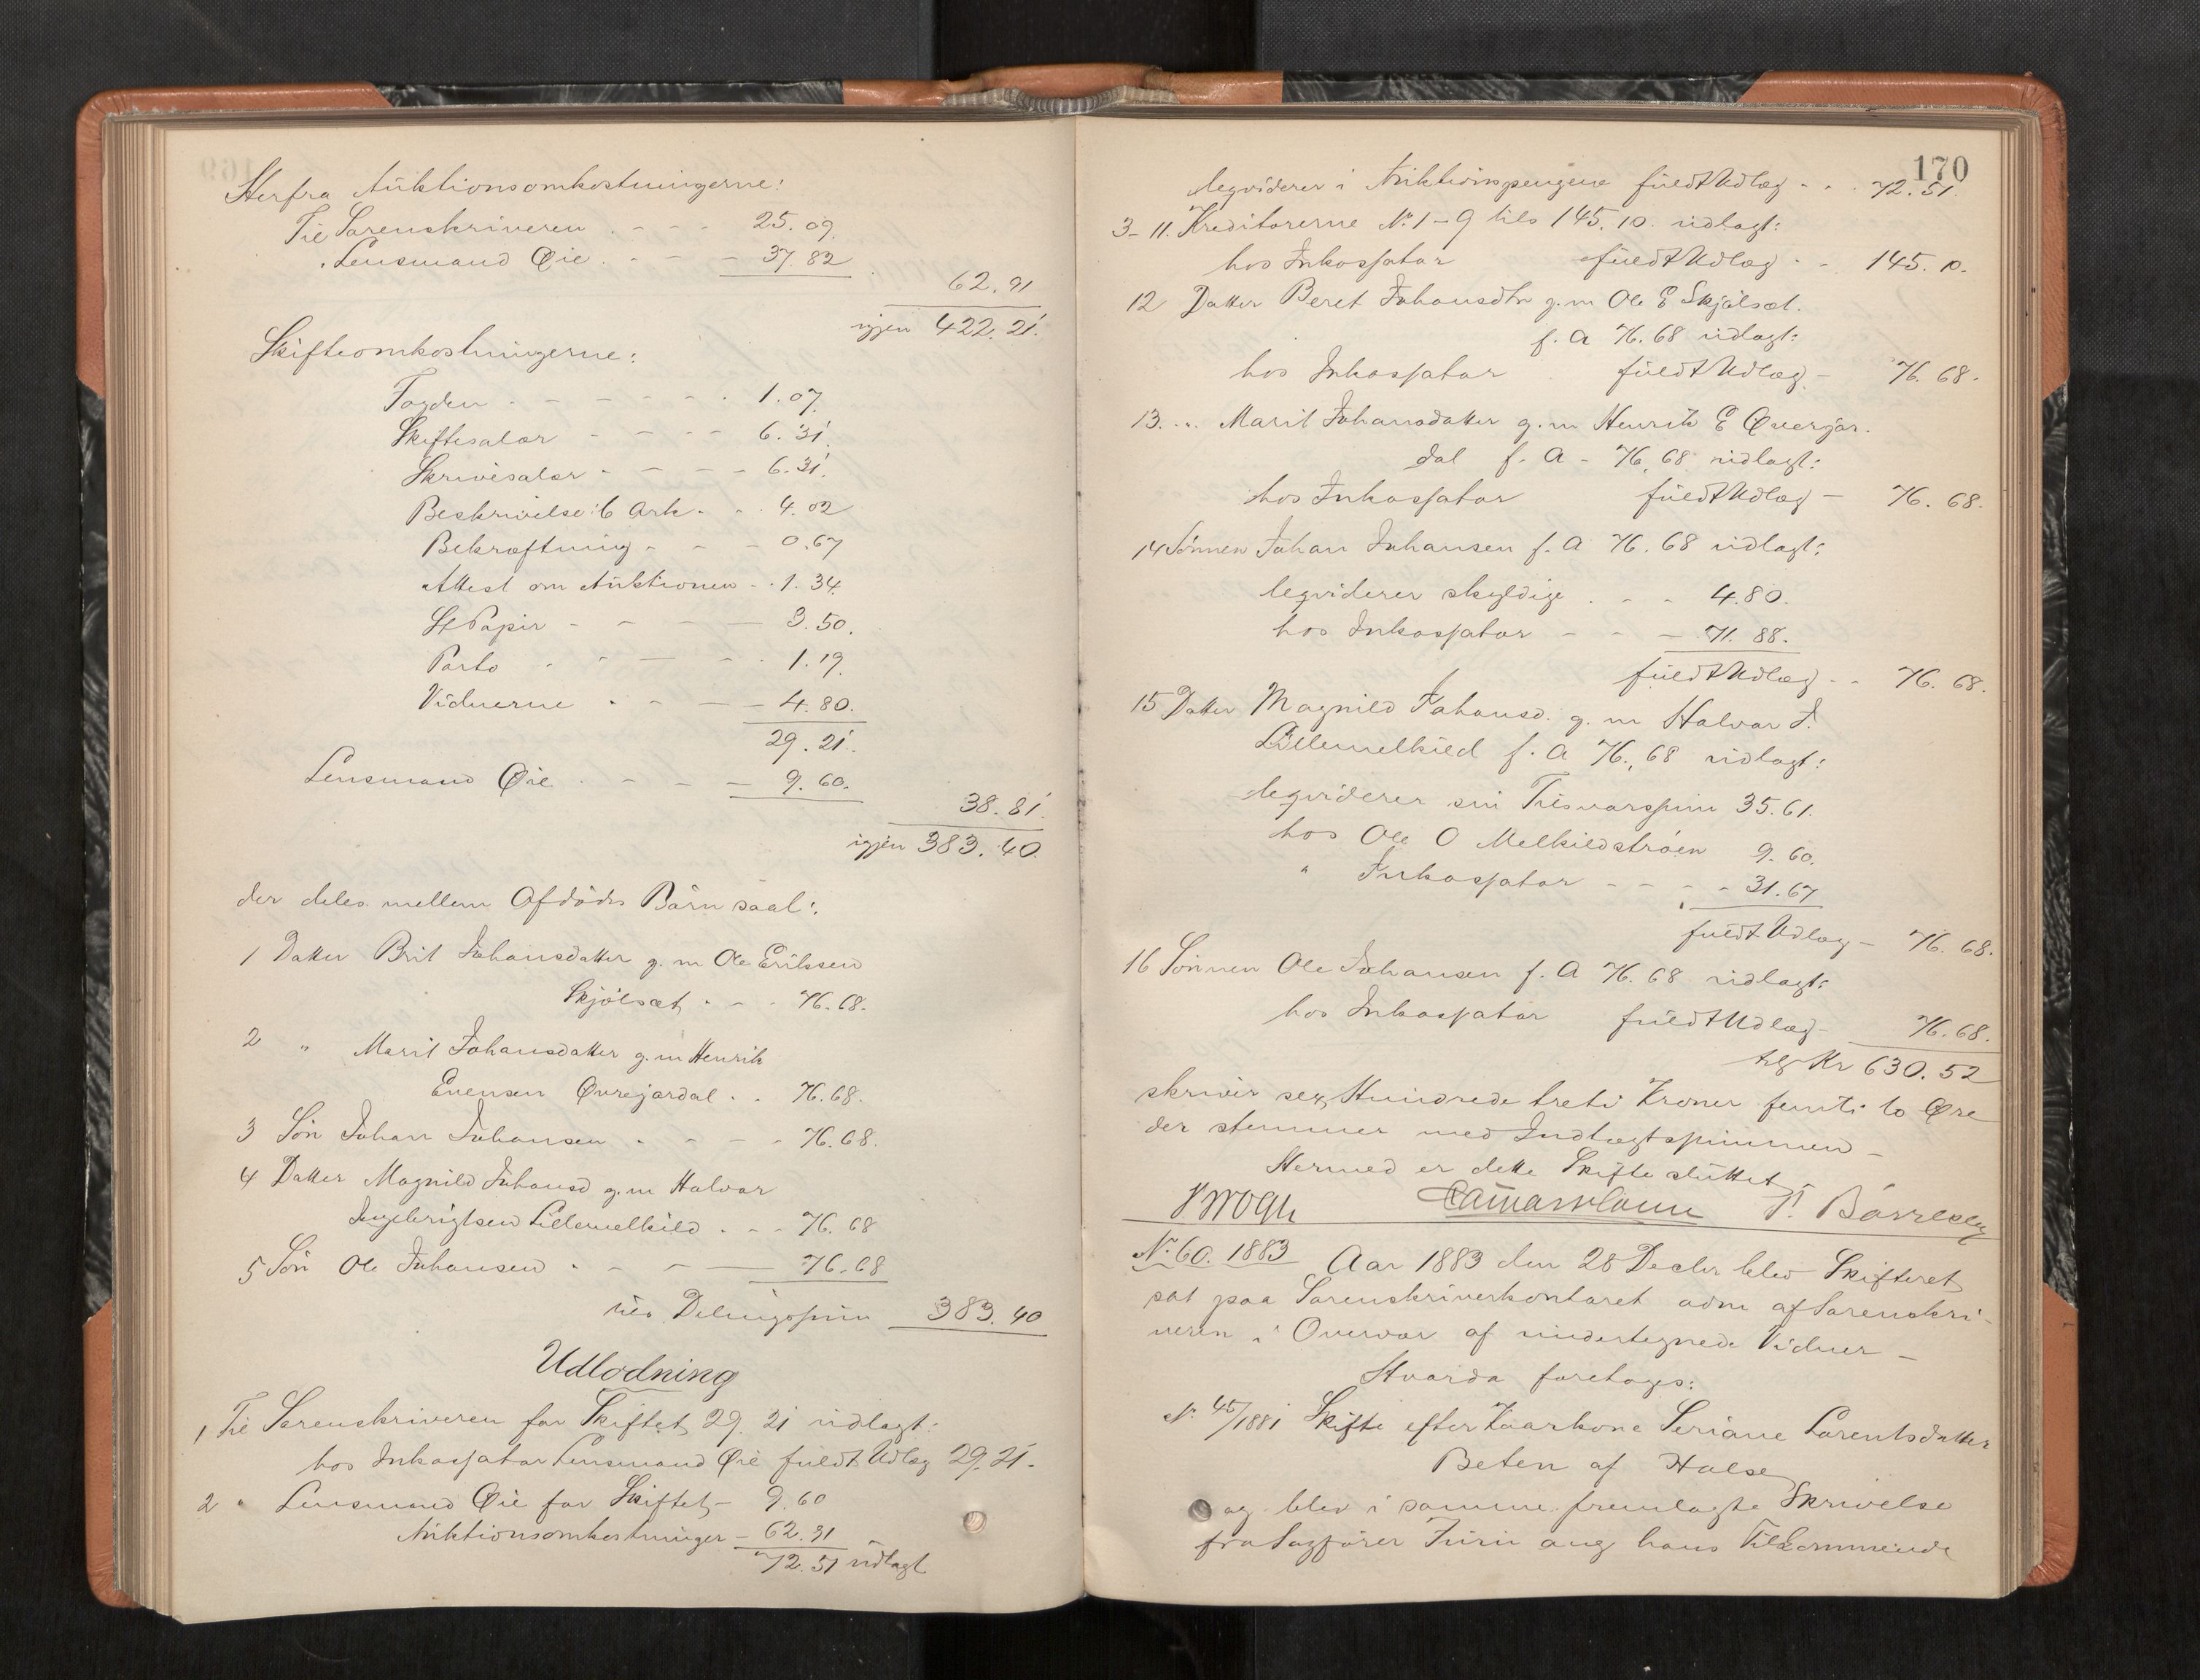 Herfra Auktionsomkostningerne:
Til Sorenskriveren . - - - 25.09.
" Lensmand Øie . - - - 37.82
62.91
igjen 422.21.
Skifteomkostningerne:
Fogden - - - - - - 1.07.
Skiftesalær - - - - 6.31.
Skrivesalær - - - - - 6.31.
Beskrivelse: 6 Ark - . . 4.02
Bekræftning - - - - 0.67
Attest om Auktionen - . 1.34.
St Papir - - - - 3.50.
Porto - - - - - 1.19.
Vidnerne - - - - 4.80.
29.21.
Lensmand Øie . - - - 9.60.
38.81.
igjen 383.40.
der deles mellem Afdødes Børn saal:
1 Datter Brit Johansdatter g. m Ole Eriksen
Skjølsæt . - - 76.68.
2 " Marit Johansdatter g. m Henrik
Evensen Øvrejordal . . 76.68.
3 Søn Johan Johansen - - - - 76.68.
4 Datter Magnild Johansd g. m Halvor
Ingebrigtsen Lillemelkild . - - 76.68
5 Søn Ole Johansen - - - - 76.68
Delingssum 383.40
Udlodning
1 Til Sorenskriveren for Skiftet 29.21 udlagt:
hos Inkassator Lensmand Øie fuldt Udlæg 29.21.
2 " Lensmand Øie for Skiftet - 9.60
Auktionsomkostninger - 62.91
72.51 udlagt
170
leqviderer i Auktionspengene fuldt Udlæg - . . 72.51.
3-11. Kreditorerne No 1-9 tils 145.10. udlagt:
hos Inkassator fuldt Udlæg - - 145.10.
12 Datter Beret Johansdtr g. m Ole E Skjølsæt.
f. A 76.68 udlagt:
hos Inkassator fuldt Udlæg - 76.68.
13. .. Marit Johansdatter g. m Henrik E Øverjor-
dal f. A - 76,68 udlagt:
hos Inkassator fuldt Udlæg - 76.68.
14 Sønnen Johan Johansen f. A 76.68 udlagt:
leqviderer skyldige . - - 4.80.
hos Inkassator - - - 71.88.
fuldt Udlæg - - 76.68.
15 Datter Magnild Johansd. g. m Halvor I.
Lillemelkild f. A 76.,68 udlagt:
leqviderer sin Tilsvarssum 35.61.
hos Ole O Melkildstrøen 9.60.
" Inkassator - - - - 31.67
fuldt Udlæg - 76.68.
16 Sønnen Ole Johansen f. A 76.68 udlagt:
hos Inkassator fuldt Udlæg - 76.68.
Kr 630.52
skriver sex Hundrede treti Kroner femti to Øre
der stemmer med Indtægtssummen -
Hermed er dette Skifte sluttet
No 60. 1883 Aar 1883 den 28 Decbr blev Skifteret
sat paa Sorenskriverkontoret adm af Sorenskri-
veren i Overvær af undertegnede Vidner -
Hvorda foretoges:
No 45/1881 Skifte efter Kaarkone Seriane Lorentsdatter
Beten af Halse
og blev i samme fremlagte Skrivelse
fra Sagfører Juin ang hans Tilkommende